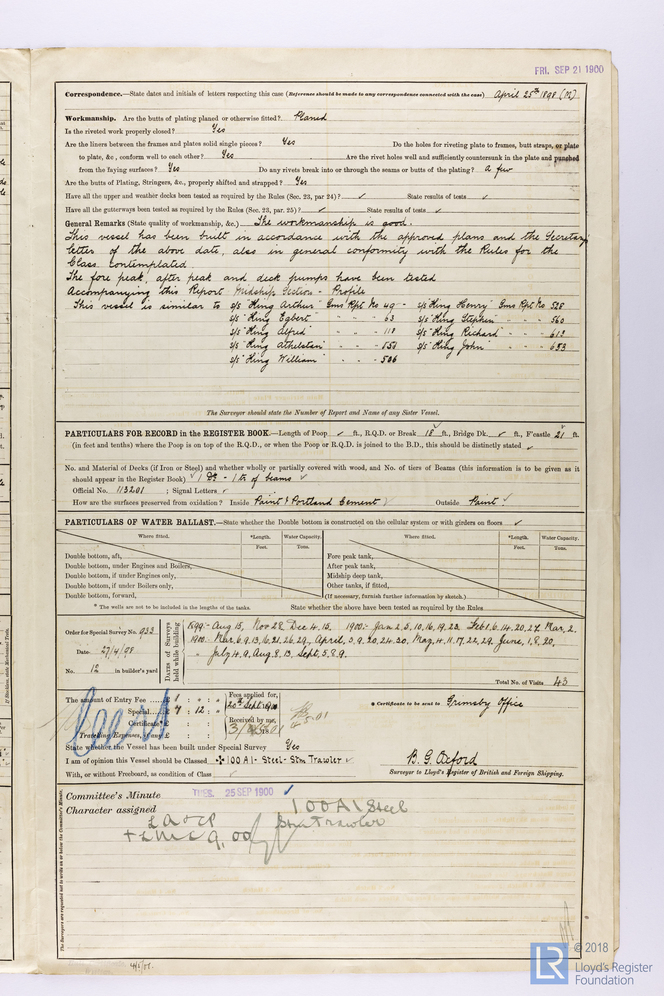 FRI. SEP 21 1900
Correspondence.—State dates and initials of letters respecting this case (Reference should be made to any correspondence connected with the case) April 25th 1898 (M)
Workmanship. Are the butts of plating planed or otherwise fitted? Planed
Is the riveted work properly closed? Yes
Are the liners between the frames and plates solid single pieces? Yes Do the holes for riveting plate to frames, butt straps, or plate
to plate, &c., conform well to each other? Yes Are the rivet holes well and sufficiently countersunk in the plate and punched
from the faying surfaces? Yes Do any rivets break into or through the seams or butts of the plating? a few
Are the butts of Plating, Stringers, &c., properly shifted and strapped? Yes
Have all the upper and weather decks been tested as required by the Rules (Sec. 23, par 24)? ✓ State results of tests ✓
Have all the gutterways been tested as required by the Rules (Sec. 23, par. 25)? ✓ State results of tests ✓
General Remarks (State quality of workmanship, &c.) The workmanship is good.
This vessel has been built in accordance with the approved plans and the Secretary's
letter of the above date, also in general conformity with the Rules for the
Class contemplated
The fore peak, after peak and deck pumps have been tested
Accompanying this Report Midship Section - Profile
This vessel is similar to S/S "King Arthur" Gms Rpt No 49 - S/S "King Henry" Gms Rpt No 528
S/S "King Egbert" - - - 63 S/S "King Stephen" - - - 560
S/S "King Alfred" - - - 118 S/S "King Richard" - - - 613
S/S "King Athelstan" - - - 151 S/S "King John" - - - 653
S/S "King William" - - - 506
The Surveyor should state the Number of Report and Name of any Sister Vessel.
PARTICULARS FOR RECORD in the REGISTER BOOK.—Length of Poop ✓ ft., R.Q.D. or Break 18 ft., Bridge Dk. ✓ ft., F'castle 21 ft.
(in feet and tenths) where the Poop is on top of the R.Q.D., or when the Poop or R.Q.D. is joined to the B.D., this should be distinctly stated ✓
No. and Material of Decks (if Iron or Steel) and whether wholly or partially covered with wood, and No. of tiers of Beams (this information is to be given as it
should appear in the Register Book) ✓ 1 Dk - 1 tr of beams ✓
Official No. 113201 ; Signal Letters ✓
How are the surfaces preserved from oxidation? Inside Paint & Portland Cement ✓ Outside Paint ✓
PARTICULARS OF WATER BALLAST.—State whether the Double bottom is constructed on the cellular system or with girders on floors ✓
Where fitted. *Length. Water Capacity. Where fitted. *Length. Water Capacity.
Feet. Tons. Feet. Tons.
Double bottom, aft, Fore peak tank,
Double bottom, under Engines and Boilers, After peak tank,
Double bottom, if under Engines only, Midship deep tank,
Double bottom, if under Boilers only, Other tanks, if fitted,
Double bottom, forward, (If necessary, furnish further information by sketch.)
* The wells are not to be included in the lengths of the tanks. State whether the above have been tested as required by the Rules
Order for Special Survey No. 933
Date 27/4/98
No. 12 in builder's yard
Dates of Surveys held while building
1899:- Aug 15, Nov 28, Dec 4. 15. 1900:- Jan 2, 5, 10, 16, 19, 23 Feb 1, 6, 14, 20, 27, Mar, 2,
1900. Mar, 6, 9, 13, 16, 21, 26, 29, April, 3, 9, 20, 24, 30, May, 4, 11, 17, 22, 29, June, 1, 8, 20,
" July 4, 9, Aug, 8, 13, Sept, 5, 8, 9.
Total No. of Visits 43
The amount of Entry Fee £ 1 : :
Special £ 7 : 12 :
Certificate
Travelling Expenses, if any £
Fees applied for,
20th Sept 1900
Received by me,
* Certificate to be sent to Grimsby Office
State whether the Vessel has been built under Special Survey Yes
I am of opinion this Vessel should be Classed ✠ 100 A1 - Steel - Stm Trawler ✓
With, or without Freeboard, as condition of Class ✓
B. G. Oxford
Surveyor to Lloyd's Register of British and Foreign Shipping.
Committee's Minute TUES. 25 SEP 1900 ✓
Character assigned 100 A1 Steel
Stm Trawler
L A & C P
+ L M C 9, 00
© 2018
Lloyd's Register
Foundation
LR